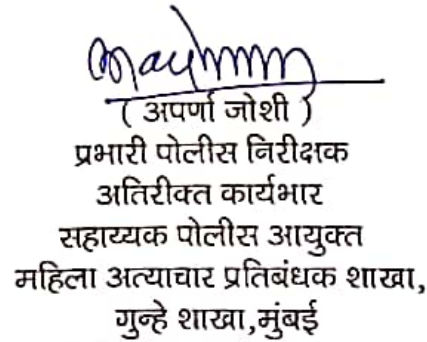 ( अपर्णा जोशी )
प्रभारी पोलीस निरीक्षक
अतिरीक्त कार्यभार
सहाय्यक पोलीस आयुक्त
महिला अत्याचार प्रतिबंधक शाखा,
गुन्हे शाखा,मुंबई